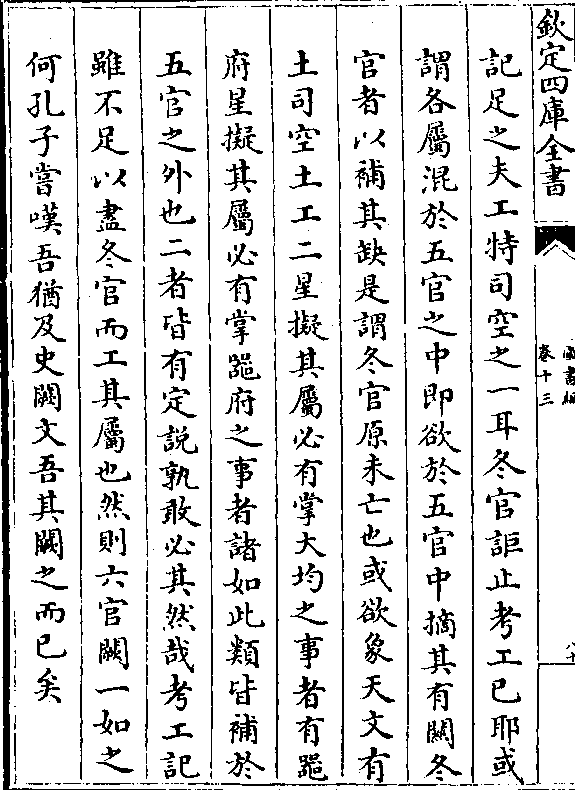 欽定四庫全書
圖書編
卷十三
記足之夫工特司空之一耳冬官詎止考工已耶或
謂各屬混於五官之中即欲於五官中摘其有關冬
官者以補其缺是謂冬官原未亡也或欲象天文有
土司空土工二星擬其屬必有掌大均之事者有
府星擬其屬必有掌府之事者諸如此類皆補於
五官之外也二者皆有定說孰敢必其然哉考工記
雖不足以盡冬官而工其屬也然則六官闕一如之
何孔子嘗嘆吾猶及史闕文吾其闕之而已矣